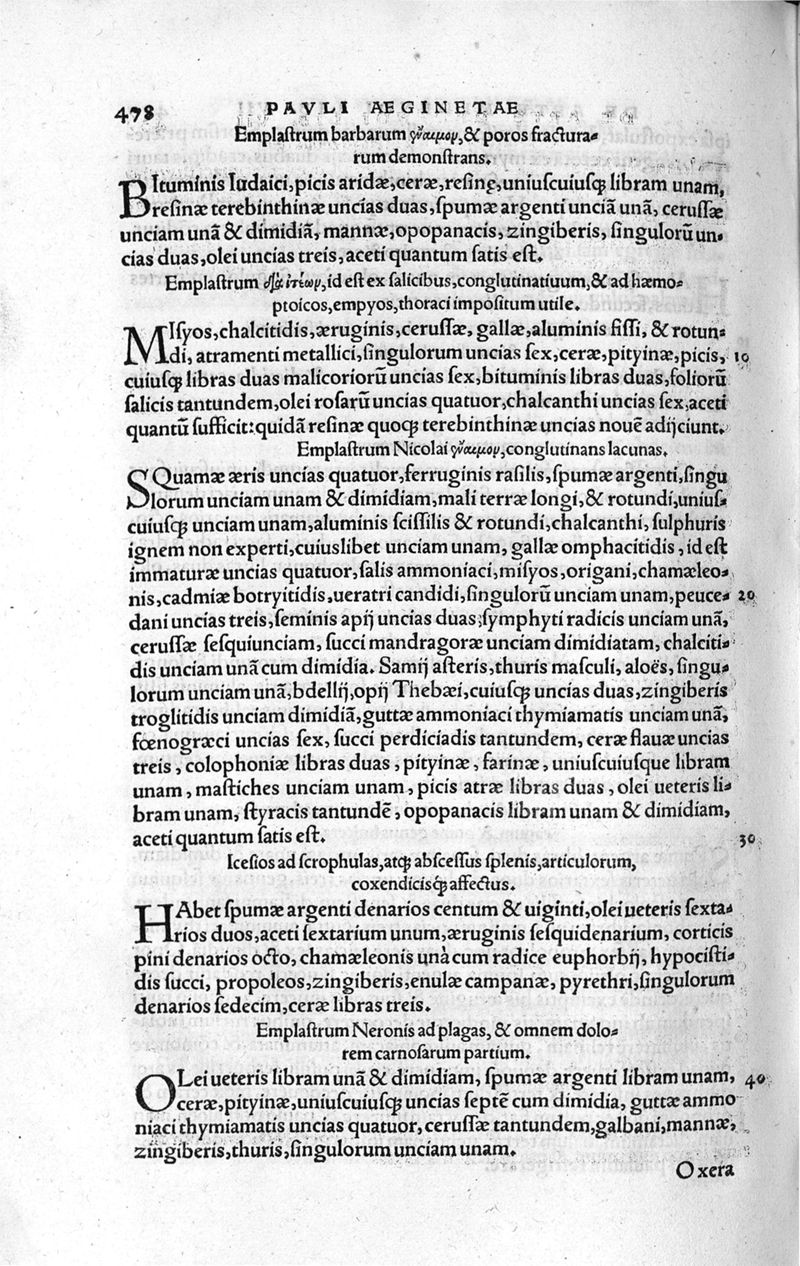 478 PAVLI AEGINETAE
Emplastrum barbarum ἔναιμον, & poros fractura-
rum demonstrans.
BItuminis Iudaici, picis aridæ, ceræ, resinę, uniuscuiusq; libram unam,
resinæ terebinthinæ uncias duas, spumæ argenti unciā unā, cerussæ
unciam unā & dimidiā, mannæ, opopanacis, zingiberis, singulorū un-
cias duas, olei uncias treis, aceti quantum satis est.
Emplastrum διὰ ἰτεῶν, id est ex salicibus, conglutinatiuum, & ad hæmo-
ptoicos, empyos, thoraci impositum utile.
MIsyos, chalcitidis, æruginis, cerussæ, gallæ, aluminis fissi, & rotun-
di, atramenti metallici, singulorum uncias sex, ceræ, pityinæ, picis, 10
cuiusq; libras duas malicoriorū uncias sex, bituminis libras duas, foliorū
salicis tantundem, olei rosarū uncias quatuor, chalcanthi uncias sex, aceti
quantū sufficit: quidā resinæ quoq; terebinthinæ uncias nouē adijciunt.
Emplastrum Nicolai ἔναιμον, conglutinans lacunas.
SQuamæ æris uncias quatuor, ferruginis rasilis, spumæ argenti, singu
lorum unciam unam & dimidiam, mali terræ longi, & rotundi, unius-
cuiusq; unciam unam, aluminis scissilis & rotundi, chalcanthi, sulphuris
ignem non experti, cuiuslibet unciam unam, gallæ omphacitidis, id est
immaturæ uncias quatuor, salis ammoniaci, misyos, origani, chamæleo-
nis, cadmiæ botryitidis, ueratri candidi, singulorū unciam unam, peuce- 20
dani uncias treis, seminis apij uncias duas, symphyti radicis unciam unā,
cerussæ sesquiunciam, succi mandragoræ unciam dimidiatam, chalciti-
dis unciam unā cum dimidia. Samij asteris, thuris masculi, aloës, singu-
lorum unciam unā, bdellij, opij Thebæi, cuiusq; uncias duas, zingiberis
troglitidis unciam dimidiā, guttæ ammoniaci thymiamatis unciam unā,
fœnogræci uncias sex, succi perdiciadis tantundem, ceræ flauæ uncias
treis, colophoniæ libras duas, pityinæ, farinæ, uniuscuiusque libram
unam, mastiches unciam unam, picis atræ libras duas, olei ueteris li-
bram unam, styracis tantundē, opopanacis libram unam & dimidiam,
aceti quantum satis est. 30
Icesios ad scrophulas, atq; abscessus splenis, articulorum,
coxendicisq; affectus.
HAbet spumæ argenti denarios centum & uiginti, olei ueteris sexta-
rios duos, aceti sextarium unum, æruginis sesquidenarium, corticis
pini denarios octo, chamæleonis unà cum radice euphorbij, hypocisti-
dis succi, propoleos, zingiberis, enulæ campanæ, pyrethri, singulorum
denarios sedecim, ceræ libras treis.
Emplastrum Neronis ad plagas, & omnem dolo-
rem carnosarum partium.
OLei ueteris libram unā & dimidiam, spumæ argenti libram unam, 40
ceræ, pityinæ, uniuscuiusq; uncias septē cum dimidia, guttæ ammo
niaci thymiamatis uncias quatuor, cerussæ tantundem, galbani, mannæ,
zingiberis, thuris, singulorum unciam unam.
Oxera